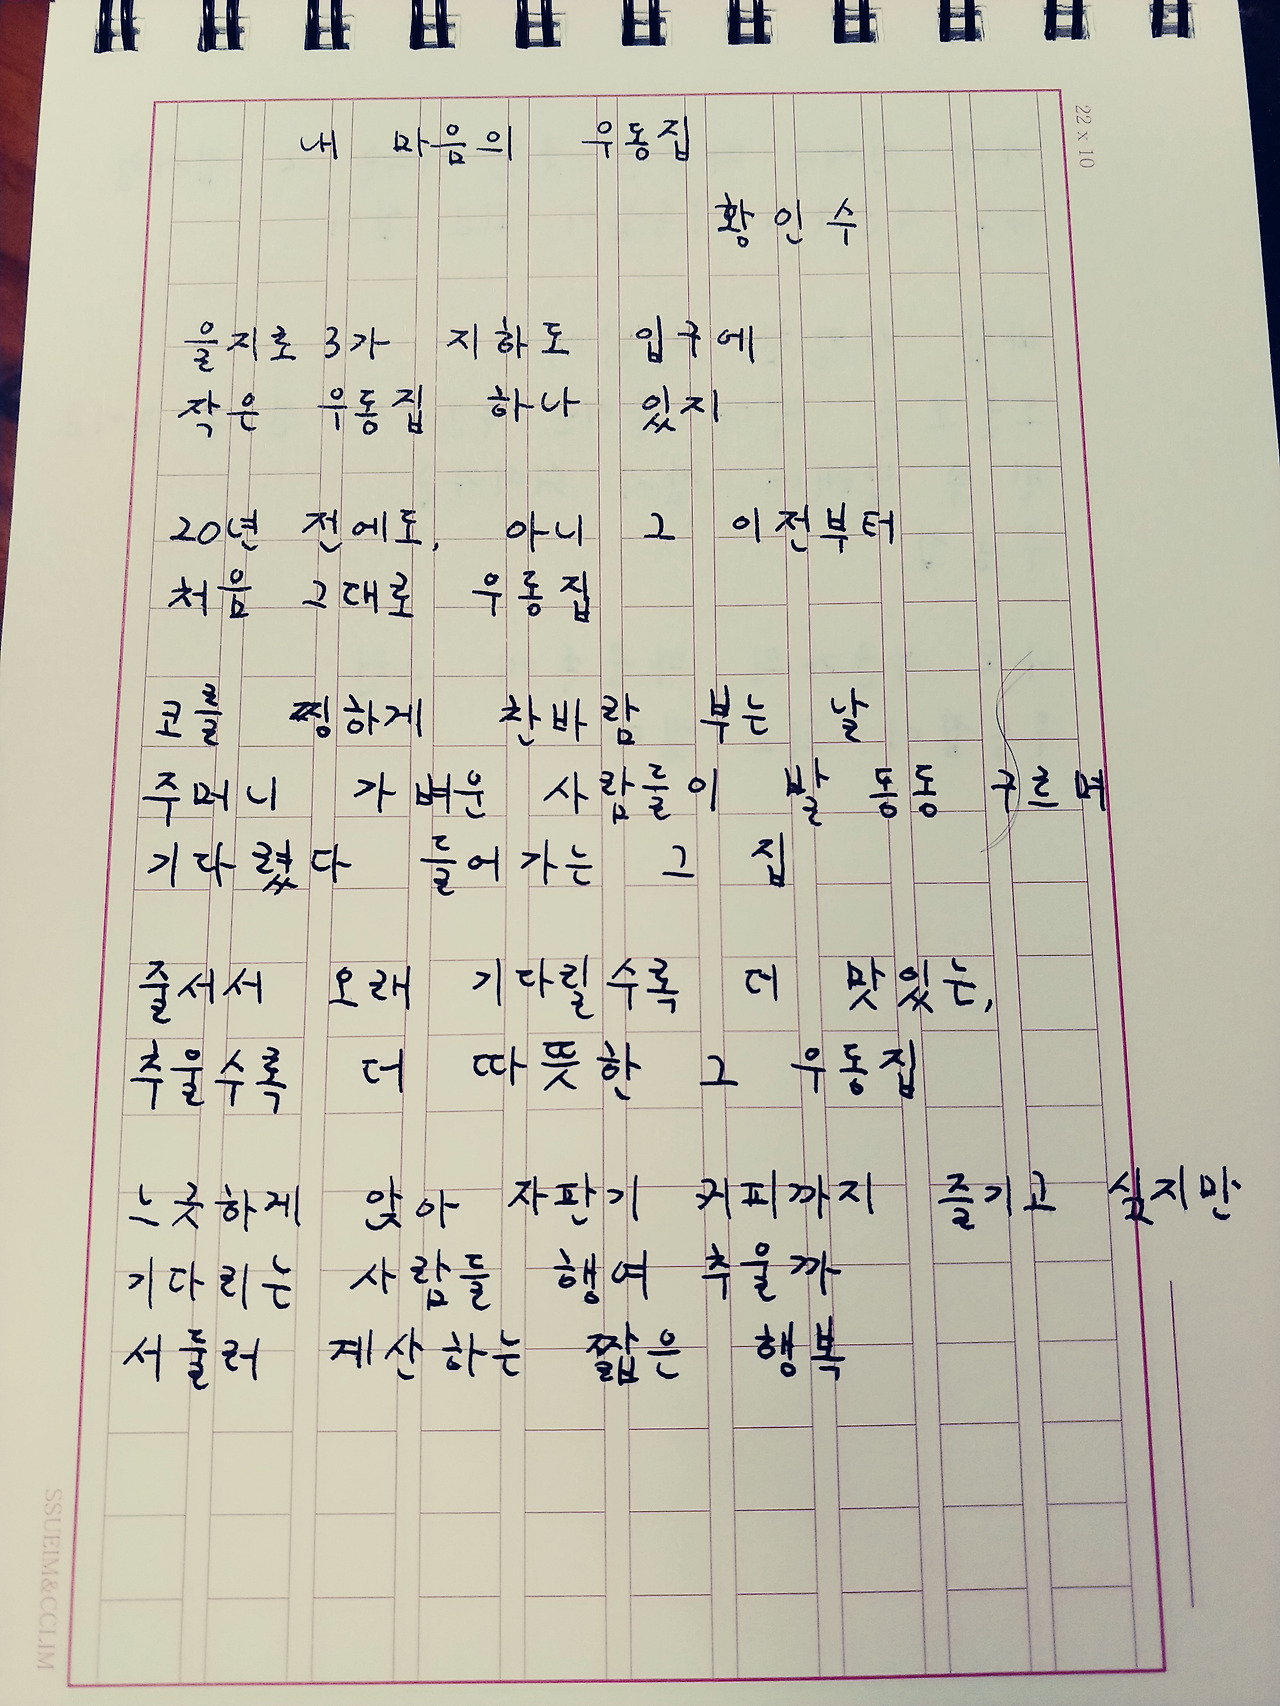 내 마음의 우동집
황인수
을지로 3가 지하도 입구에
작은 우동집 하나 있지
20년 전에도, 아니 그 이전부터
처음 그대로 우동집
코를 찡하게 찬바람 부는 날
주머니 가벼운 사람들이 발 동동 구르며
기다렸다 들어가는 그 집
줄서서 오래 기다릴수록 더 맛있는,
추울수록 더 따뜻한 그 우동집
느긋하게 앉아 자판기 커피까지 즐기고 싶지만
기다리는 사람들 행여 추울까
서둘러 계산하는 짧은 행복
22 x 10
SSUEIM&CCLIM